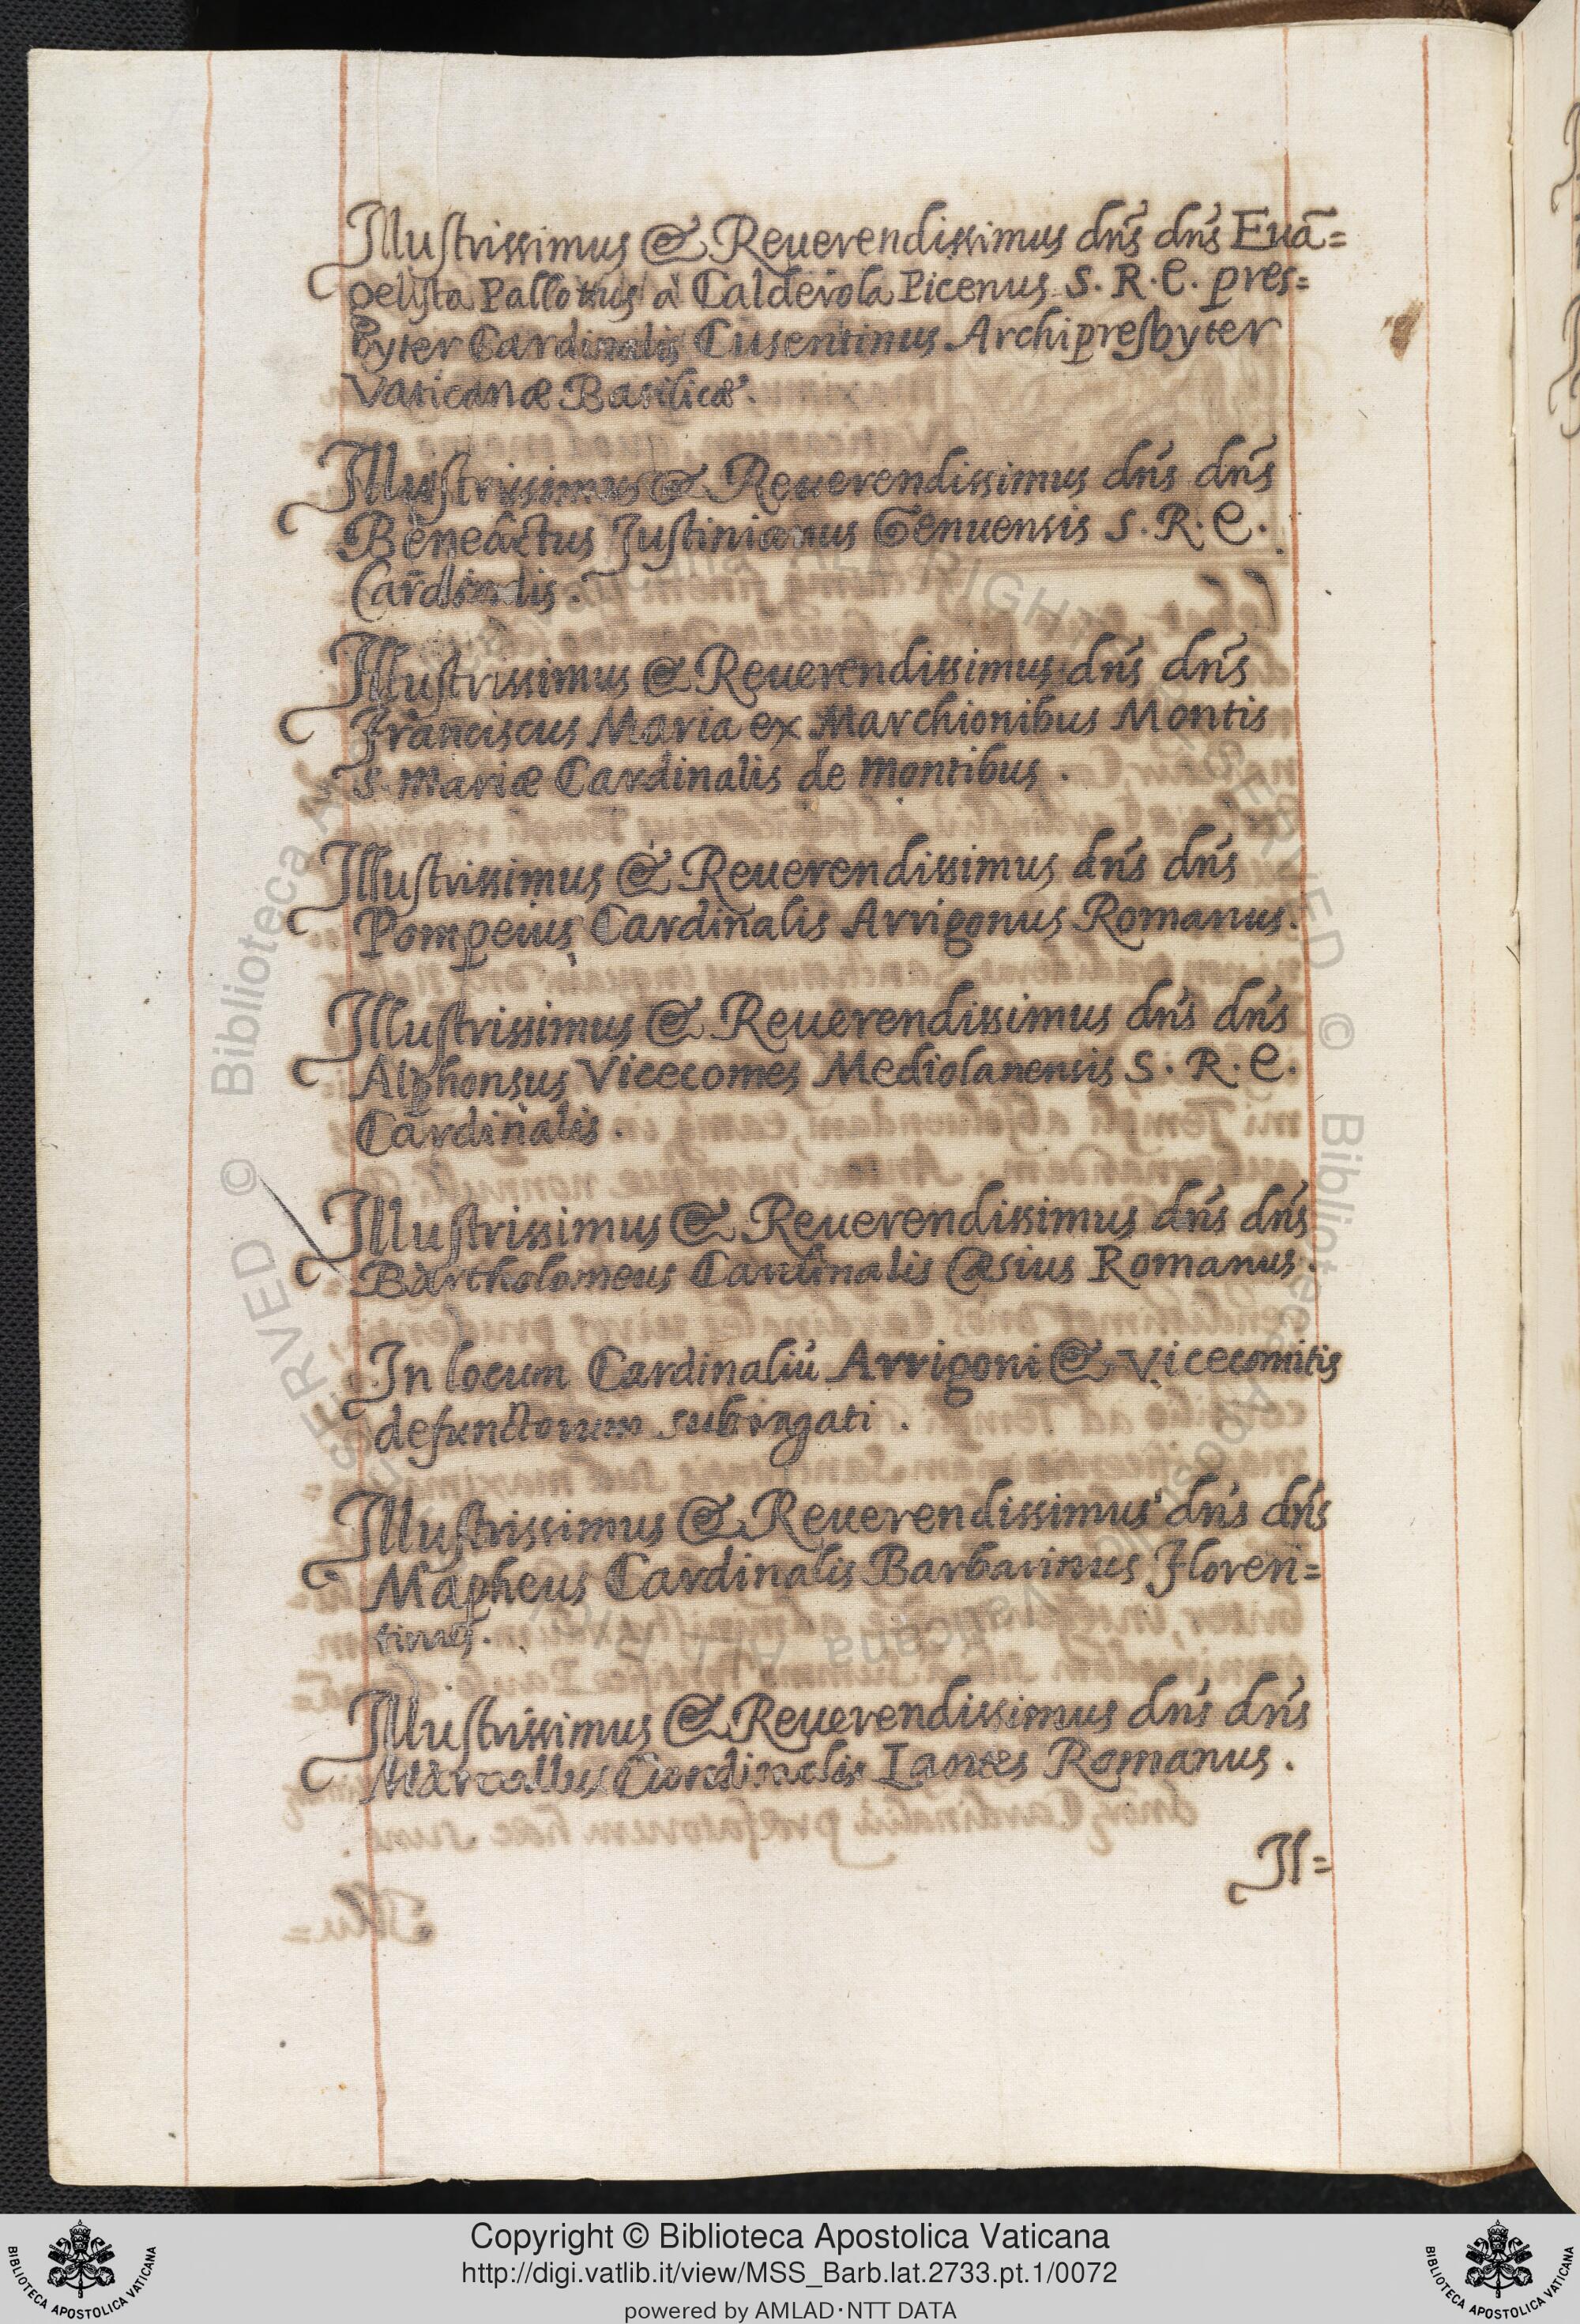 Illustrissimus & Reuerendissimus dn̄s dn̄s Euã=
gelista Pallottus à Calderola Picenus S. R. E. pres=
byter Cardinalis Cusentinus Archipresbyter
Vaticanæ Basilicæ.
Illustrissimus & Reuerendissimus dn̄s dn̄s
Benedictus Justinianus Genuensis S. R. E.
Cardinalis.
Illustrissimus & Reuerendissimus dn̄s dn̄s
Franciscus Maria ex Marchionibus Montis
S. Mariæ Cardinalis de Montibus.
Illustrissimus & Reuerendissimus dn̄s dn̄s
Pompeius Cardinalis Arrigonus Romanus.
Illustrissimus & Reuerendissimus dn̄s dn̄s
Alphonsus Vicecomes Mediolanensis S. R. E.
Cardinalis.
Illustrissimus & Reuerendissimus dn̄s dn̄s
Bartholomeus Cardinalis Cæsius Romanus.
In locum Cardinaliū Arrigoni & Vicecomitis
defunctorum subrogati.
Illustrissimus & Reuerendissimus dn̄s dn̄s
Mapheus Cardinalis Barbarinus Floren=
tinus.
Illustrissimus & Reuerendissimus dn̄s dn̄s
Marcellus Cardinalis Lantes Romanus.
Il=
Copyright © Biblioteca Apostolica Vaticana
http://digi.vatlib.it/view/MSS_Barb.lat.2733.pt.1/0072
powered by AMLAD·NTT DATA
BIBLIOTECA APOSTOLICA VATICANA
BIBLIOTECA APOSTOLICA VATICANA